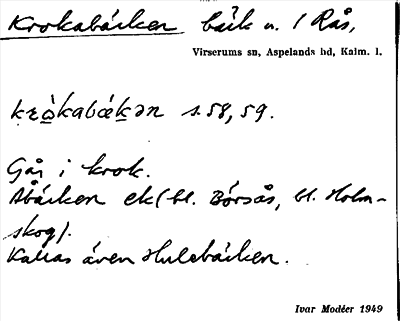 Krokabäcken bäck n. / Rås,
Virserums sn, Aspelands hd, Kalm. l.
s. 58, 59.
Går i krok.
Åbäcken ek (bl. Börsås, bl. Holm-
skog).
Kallas även Hulebäcken.
Ivar Modéer 1949